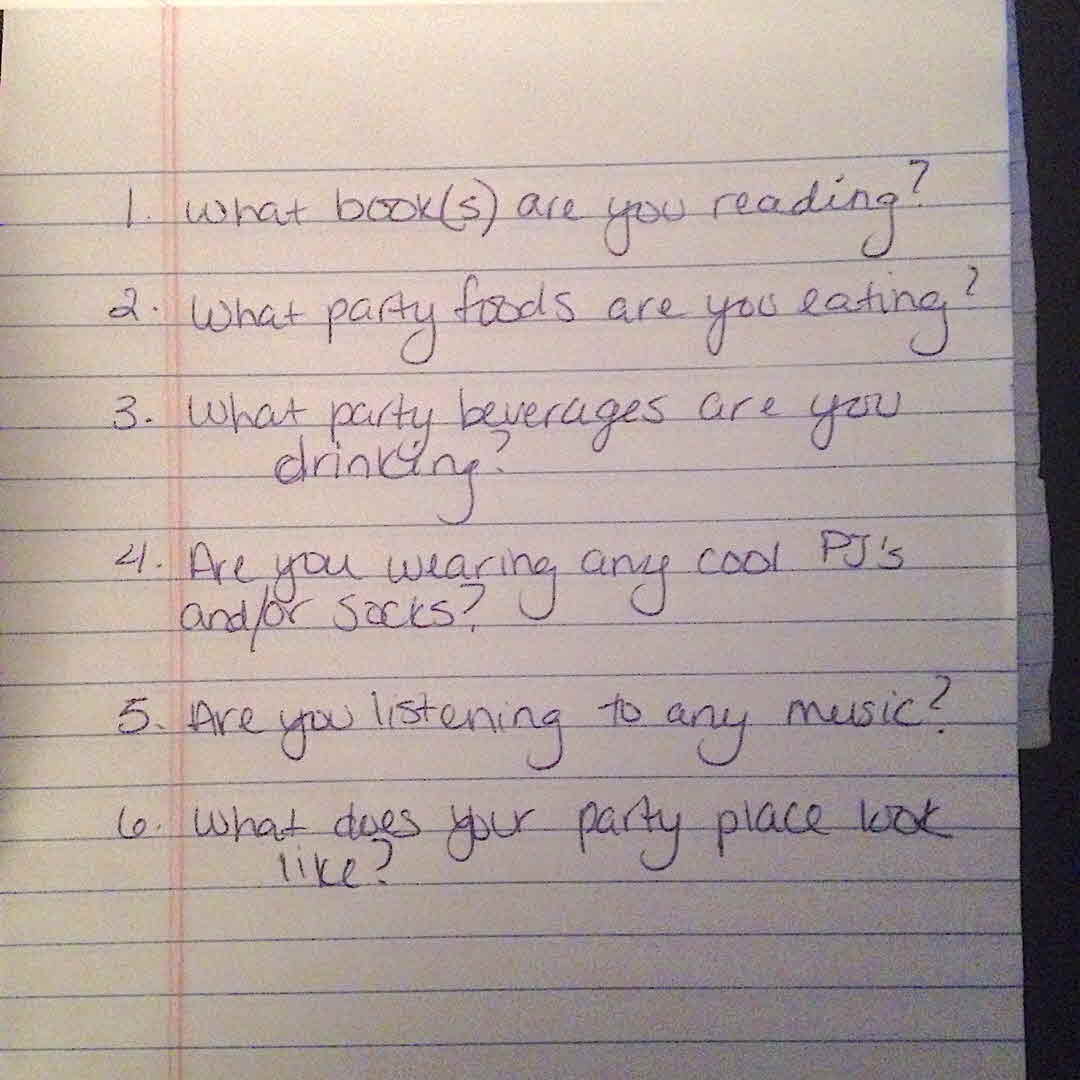 1. What book(s) are you reading?
2. What party foods are you eating?
3. What party beverages are you
drinking?
4. Are you wearing any cool PJ's
and/or socks?
5. Are you listening to any music?
6. What does your party place look
like?